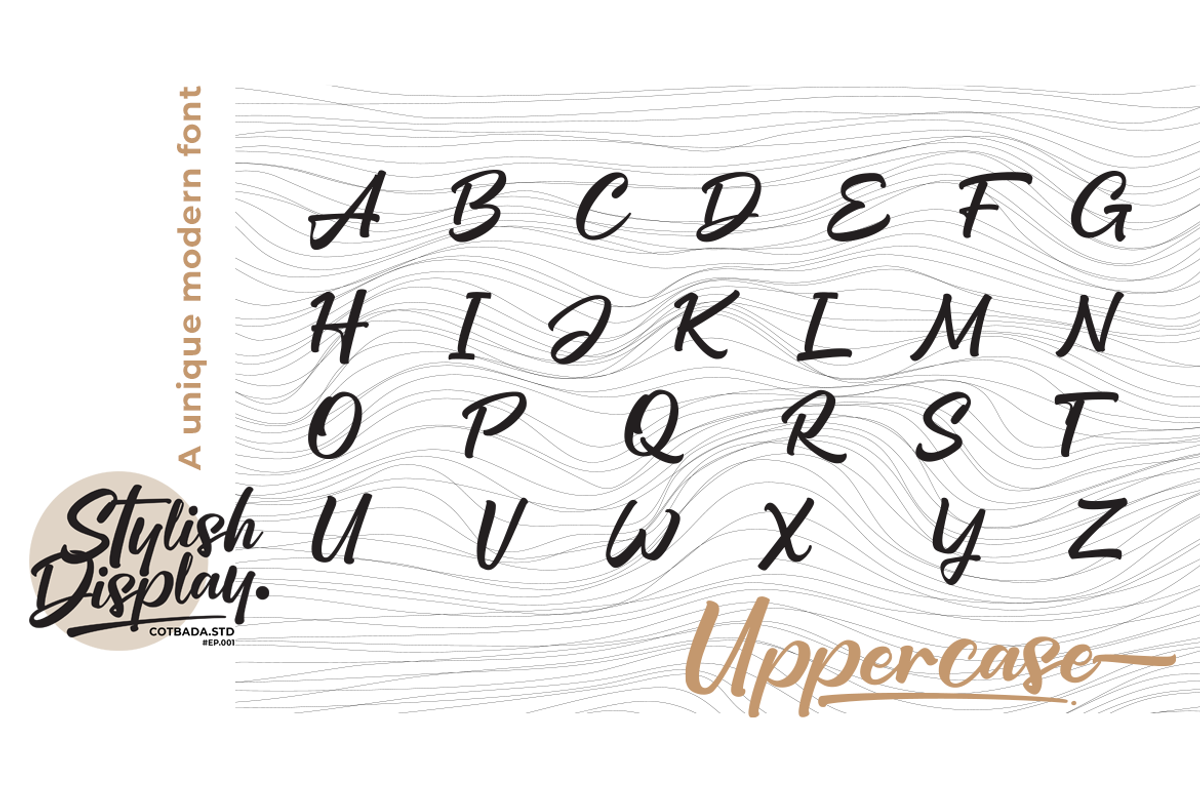 A unique modern font
A B C D E F G
H I J K L M N
O P Q R S T
U V W X Y Z
Stylish
Display.
COTBADA.STD
#EP.001
Uppercase